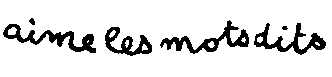 aime les mots dits